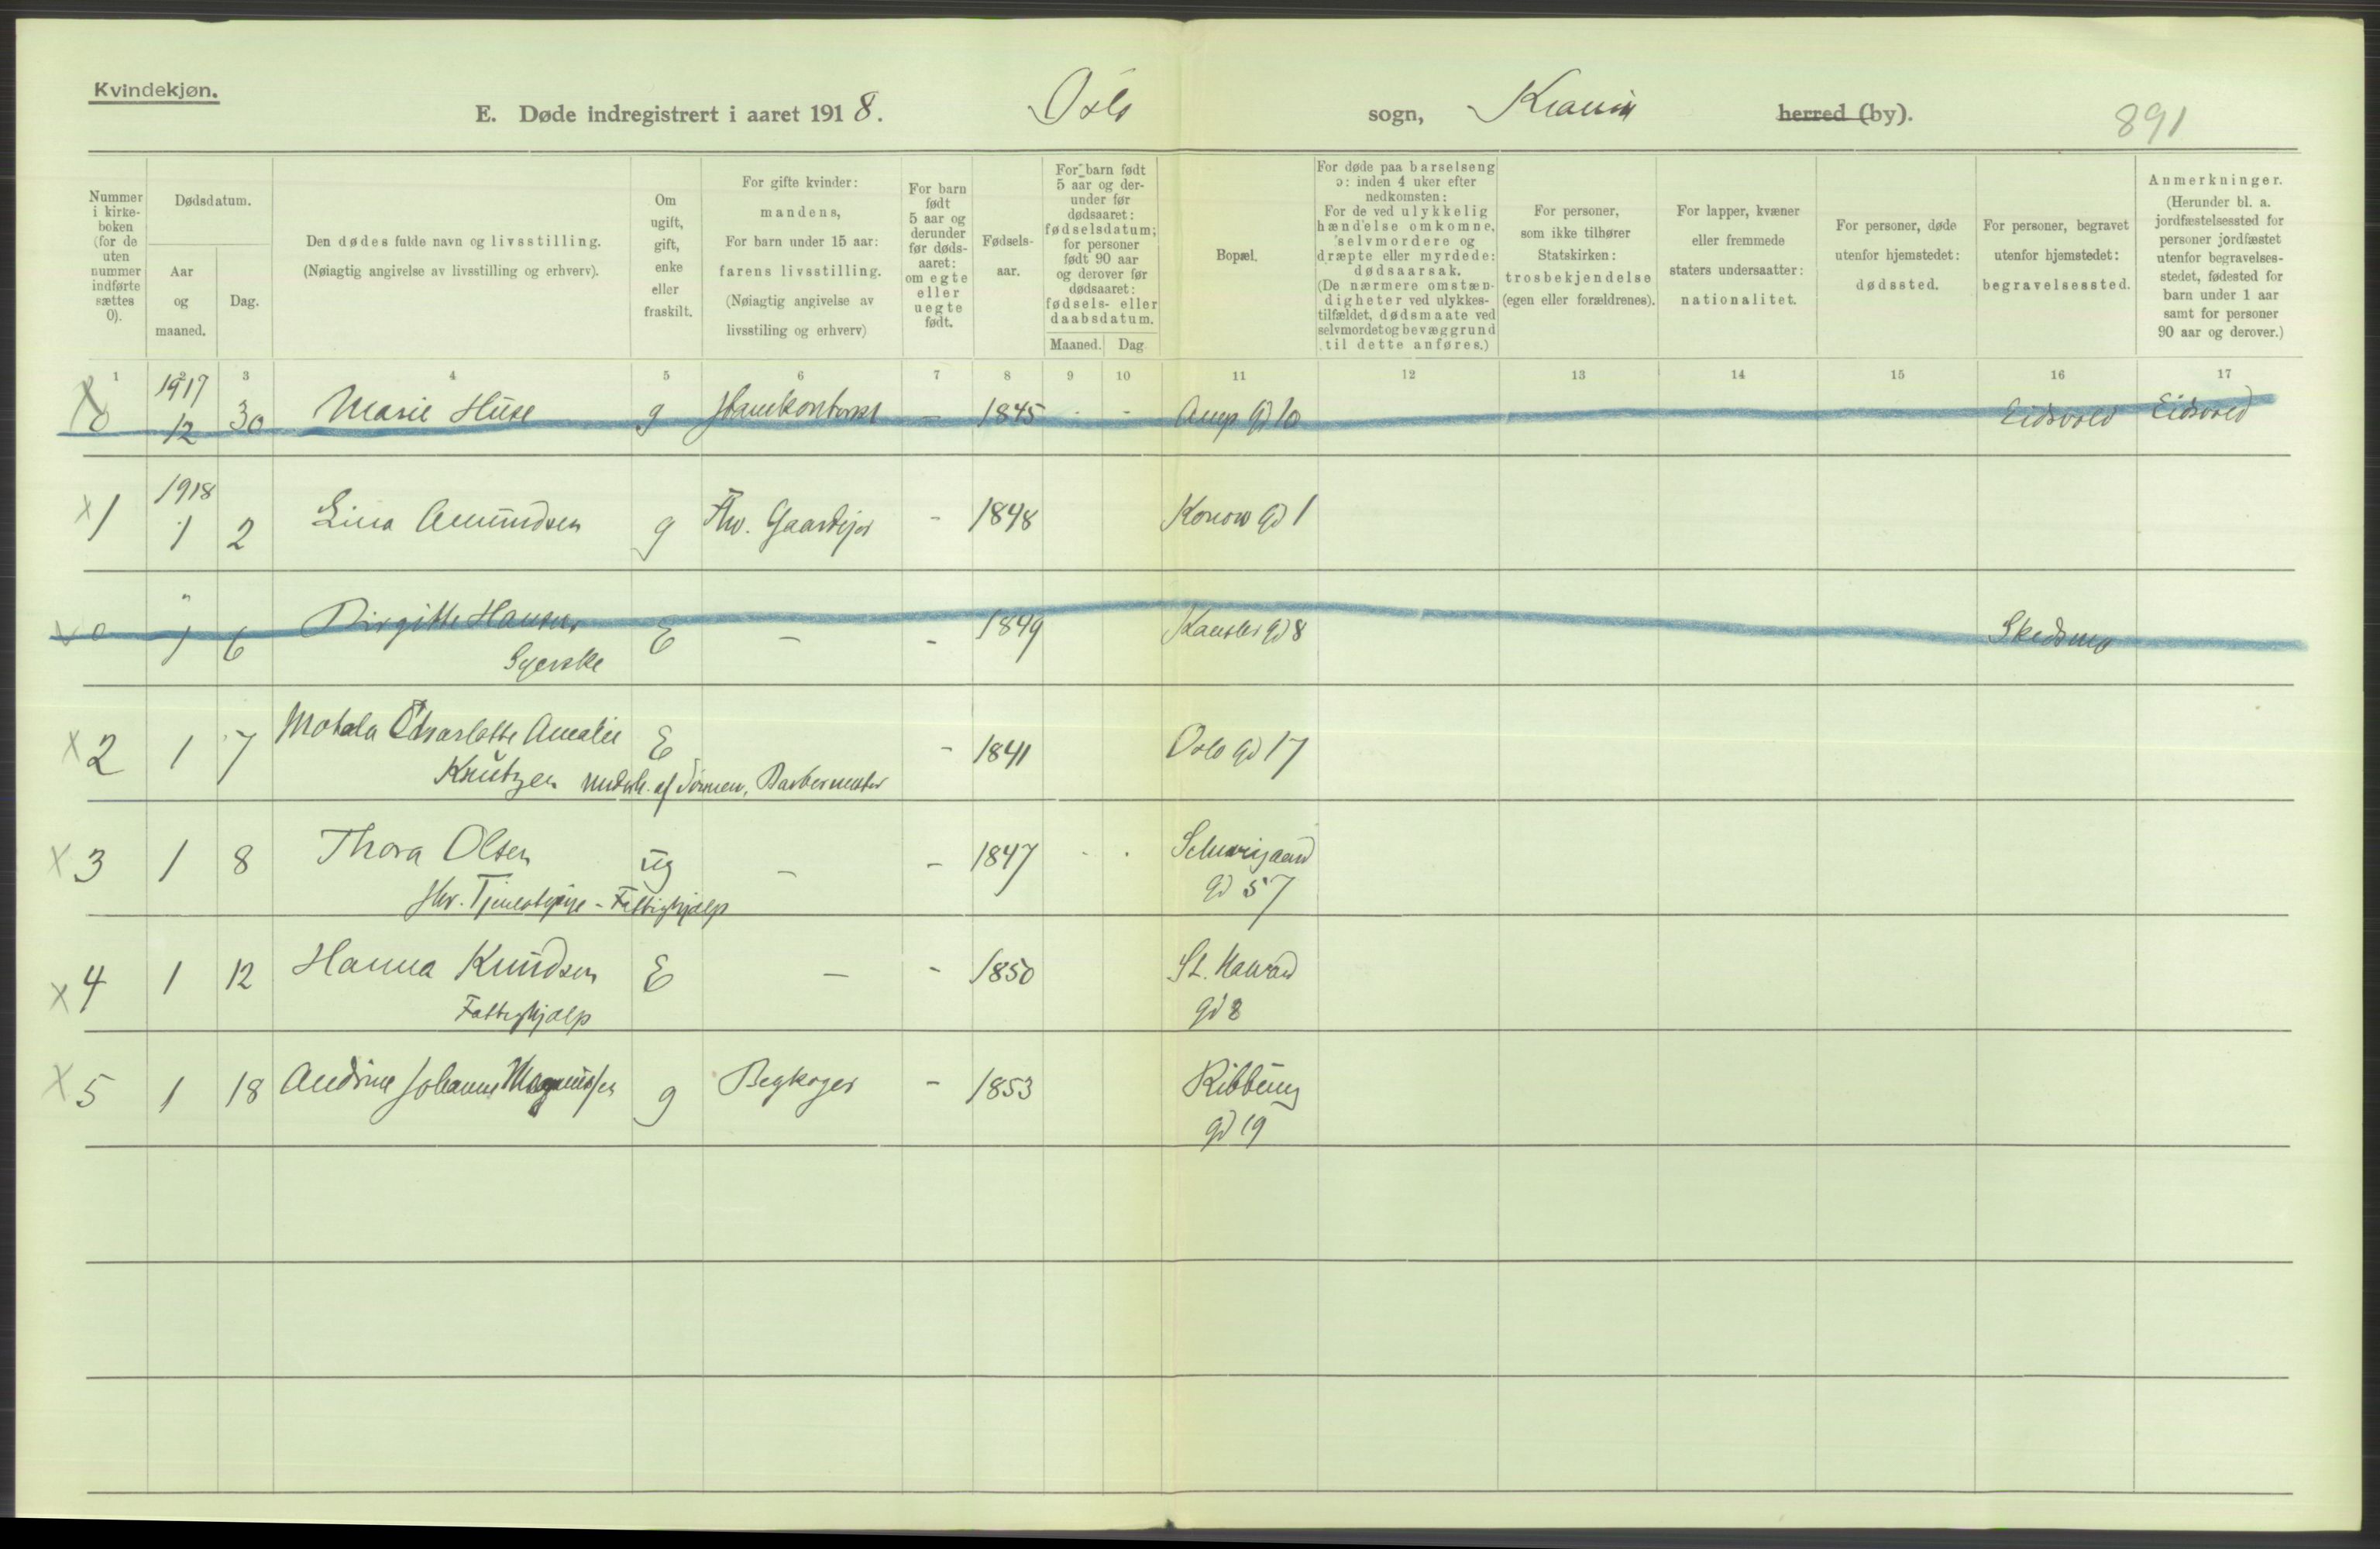 Kvindekjøn.
E. Døde indregistrert i aaret 1918. Oslo sogn, Krania herred (by). 891
Nummer i kirke-boken (for de uten nummer indførte sættes 0).
Dødsdatum.
Aar og maaned.
Dag.
Den dødes fulde navn og livsstilling.
(Nøiagtig angivelse av livsstilling og erhverv).
Om ugift, gift, enke eller fraskilt.
For gifte kvinder: mandens,
For barn under 15 aar: farens livsstilling.
(Nøiagtig angivelse av livsstiling og erhverv)
For barn født 5 aar og derunder før døds-aaret: om egte eller uegte født.
Fødsels-aar.
For barn født 5 aar og der-under før dødsaaret: fødselsdatum; for personer født 90 aar og derover før dødsaaret: fødsels- eller daabsdatum.
Maaned. Dag
Bopæl.
For døde paa barselseng ɔ: inden 4 uker efter nedkomsten:
For de ved ulykkelig hændelse omkomne, selvmordere og dræpte eller myrdede: dødsaarsak.
(De nærmere omstæn-digheter ved ulykkes-tilfældet, dødsmaate ved selvmordet og bevæggrund til dette anføres.)
For personer, som ikke tilhører Statskirken: trosbekjendelse (egen eller forældrenes).
For lapper, kvæner eller fremmede staters undersaatter: nationalitet.
For personer, døde utenfor hjemstedet: dødssted.
For personer, begravet utenfor hjemstedet: begravelsessted.
Anmerkninger.
(Herunder bl. a. jordfæstelsessted for personer jordfæstet utenfor begravelses-stedet, fødested for barn under 1 aar samt for personer 90 aar og derover.)
1 2 3 4 5 6 7 8 9 10 11 12 13 14 15 16 17
1917
0 12 30 Marie Huse g - 1845 - - Amp Gd 10 Eidsvold Eidsvold
1918
x 1 1 2 Lina Amundsen g Fhv. Gaardejer - 1848 Konow Gd 1
"
x 0 1 6 Birgitte Hansen E - - 1849 Kansler Gd 8 Skedsmo
Syerske
x 2 1 7 Motala Charlotte Amalie E - 1841 Oslo Gd 17
Knutzen af Sønnen, Barbermester
x 3 1 8 Thora Olsen ug - - 1847 - - Schweigaard
Fhv. Tjenestepige - Fattighjælp Gd 57
x 4 1 12 Hanna Knudsen E - - 1850 St. Halvard
Fattighjælp Gd 8
x 5 1 18 Andrine Johanne Magnussen g Begkoger - 1853 Ribbung
Gd 19